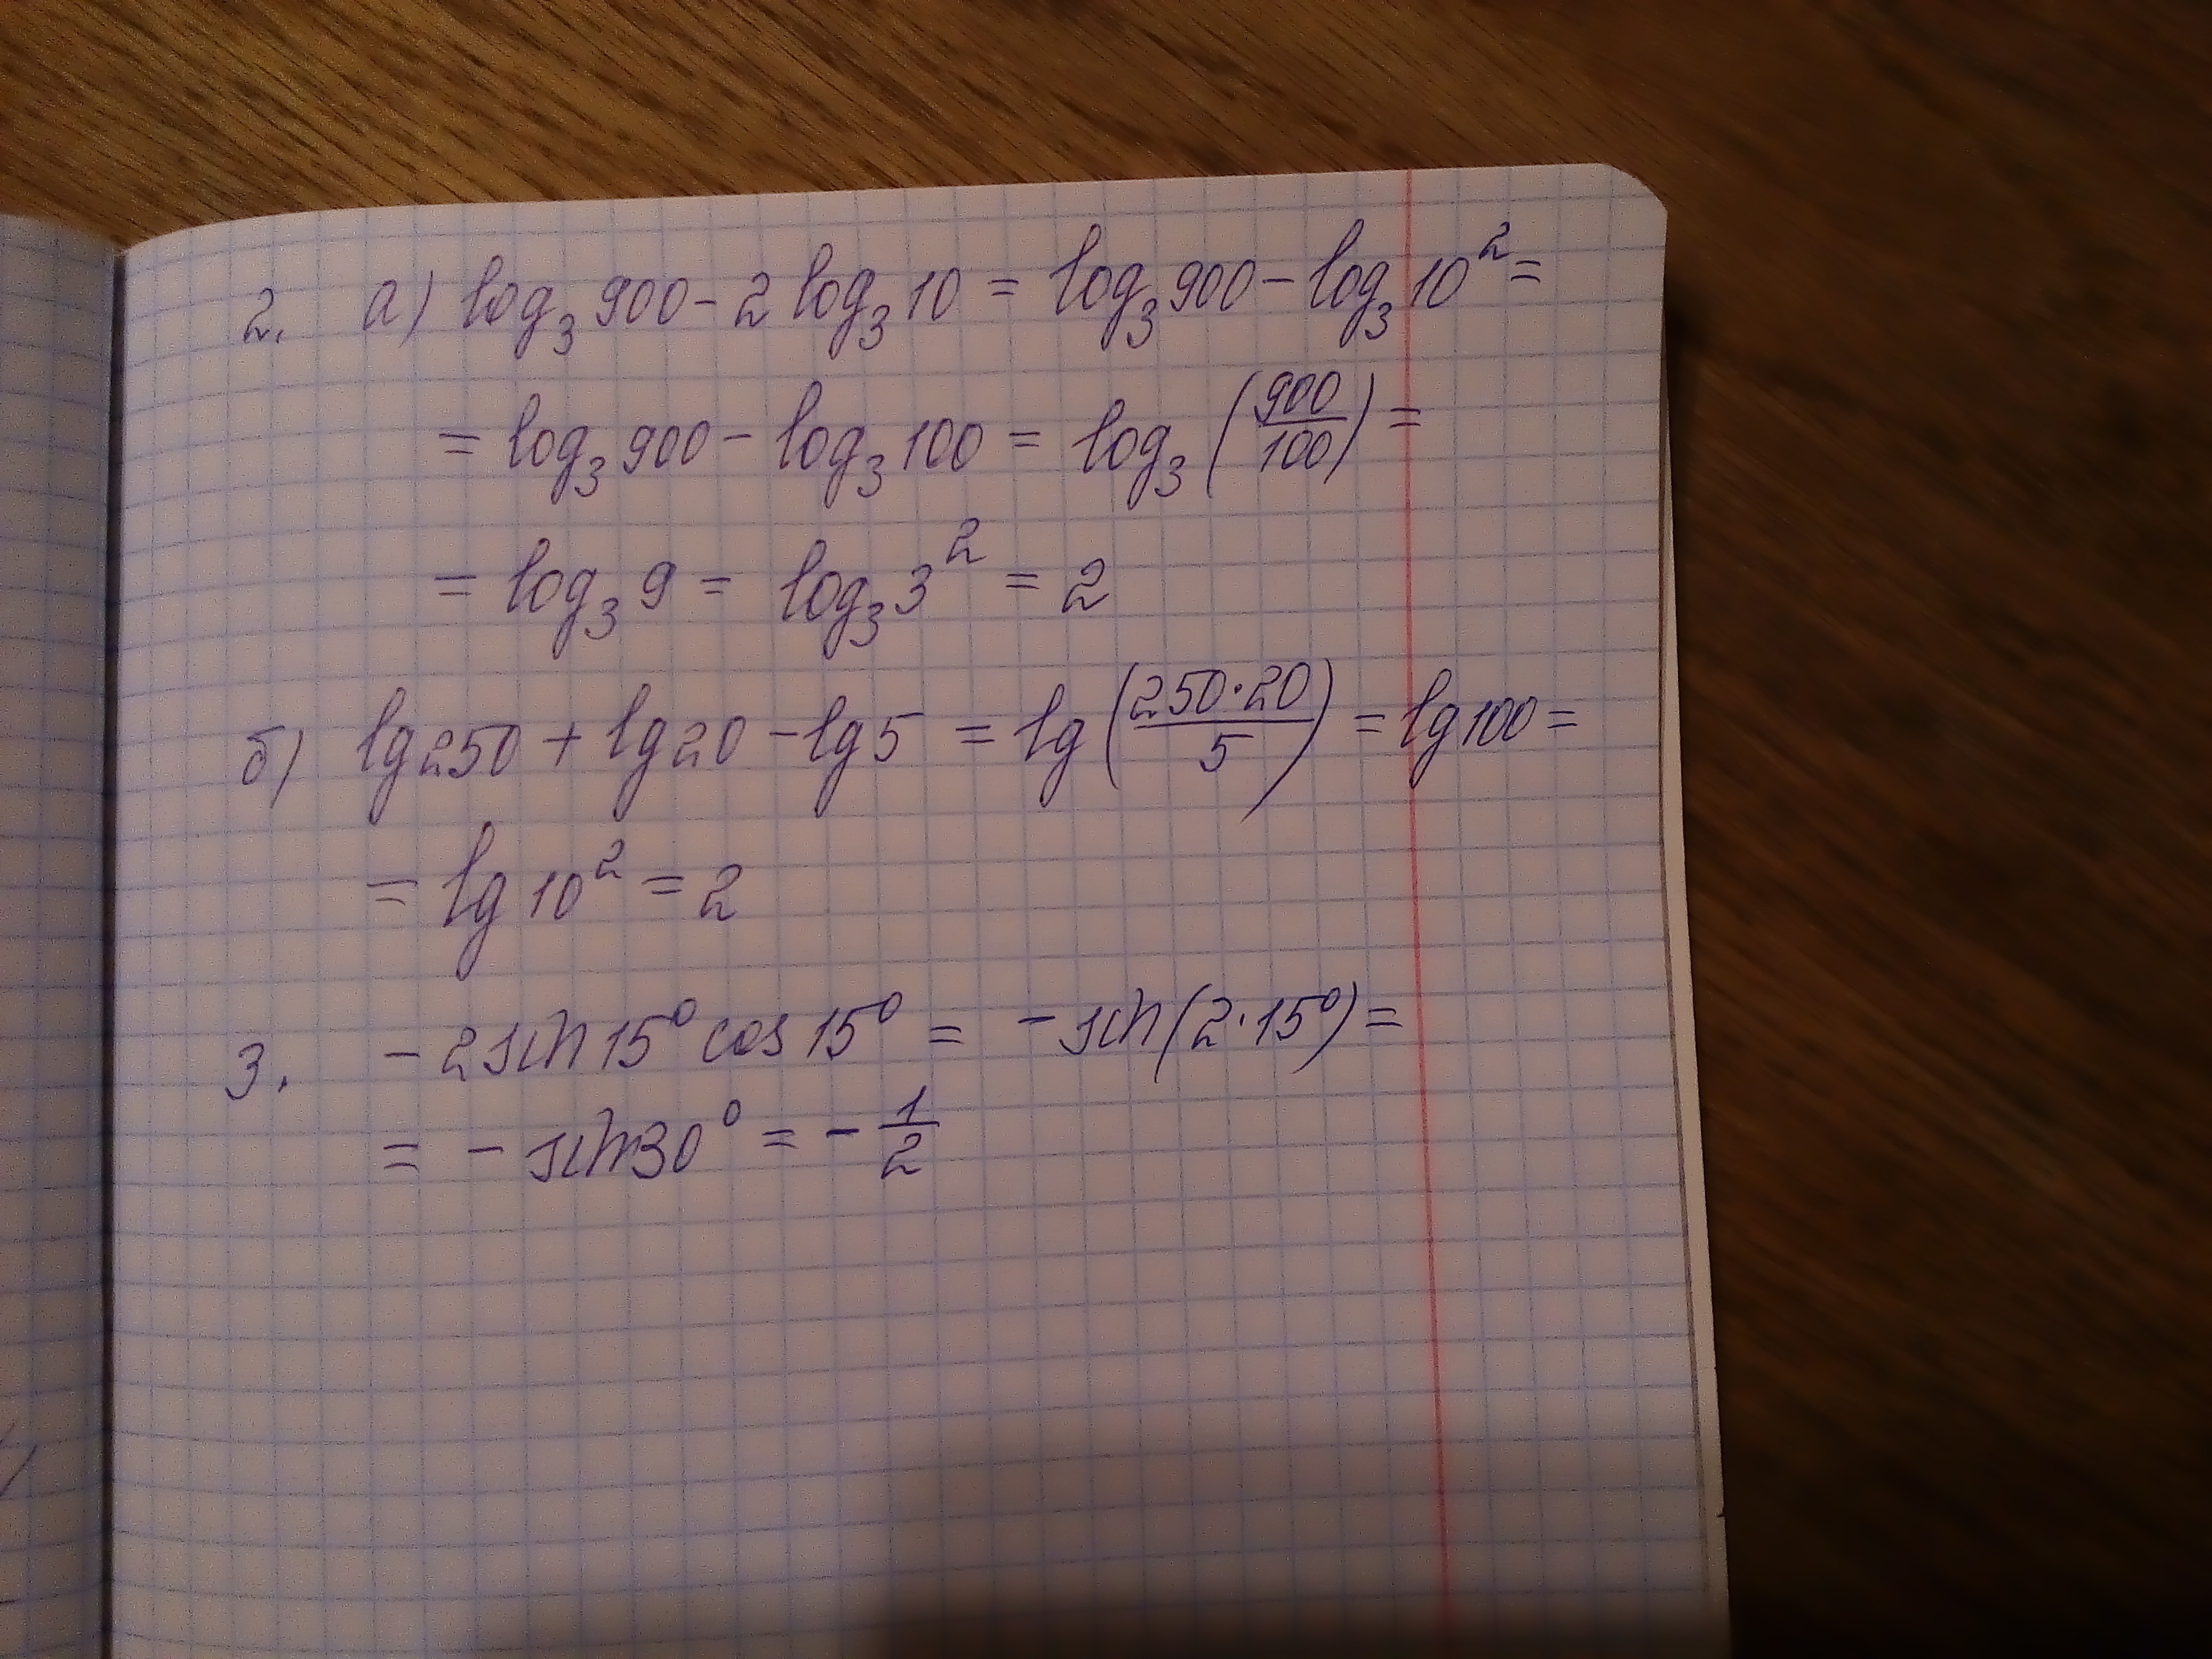 2. а) log₃ 900 - 2 log₃ 10 = log₃ 900 - log₃ 10² =
= log₃ 900 - log₃ 100 = log₃ (900/100) =
= log₃ 9 = log₃ 3² = 2
б) lg 250 + lg 20 - lg 5 = lg (250·20/5) = lg 100 =
= lg 10² = 2
3. - 2 sin 15° cos 15° = - sin (2·15°) =
= - sin 30° = - 1/2